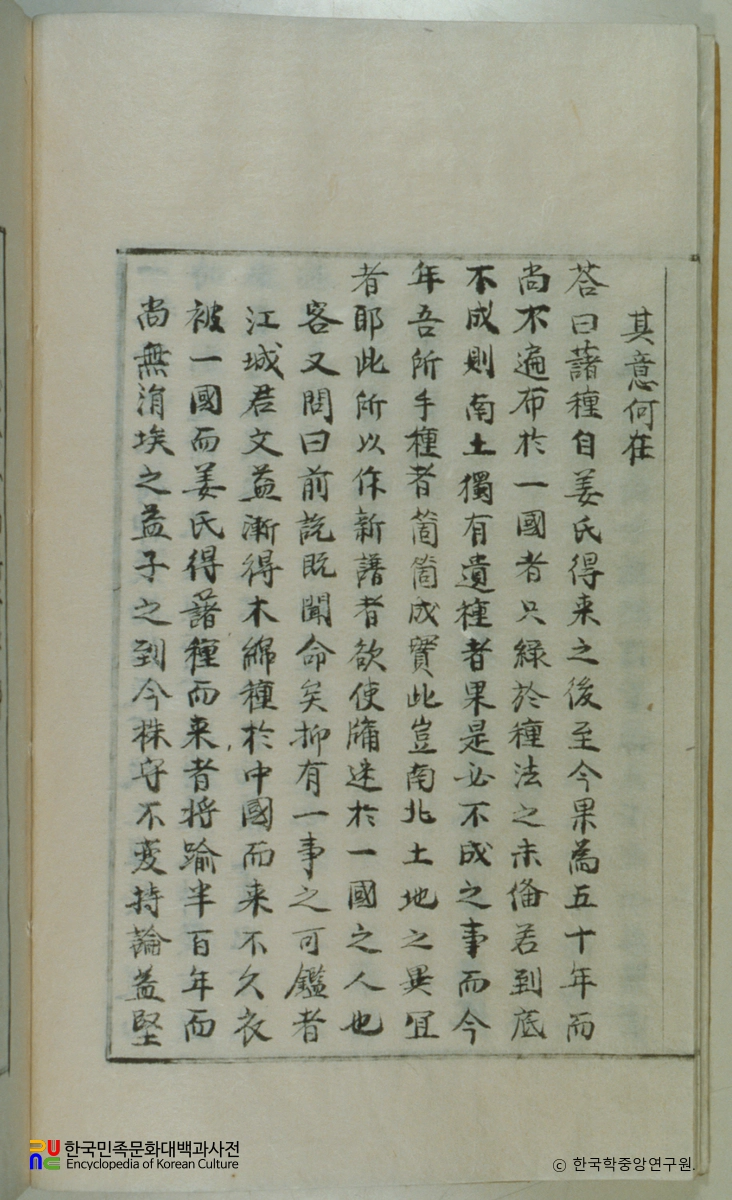 其意何在
答曰藷種自姜氏得来之後至今果為五十年而
尚不遍布於一國者只緣於種法之未俻若到底
不成則南土獨有遺種者果是必不成之事而今
年吾所手種者箇箇成實此豈南北土地之異宜
者耶此所以作新譜者欲使牖迷於一國之人也
客又問曰前説既聞命矣抑有一事之可鑑者
江城君文益漸得木綿種於中國而来不久衣
被一國而姜氏得藷種而来者将踰半百年而
尚無涓埃之益子之到今株守不变持論益堅
한국민족문화대백과사전
Encyclopedia of Korean Culture
ⓒ 한국학중앙연구원.